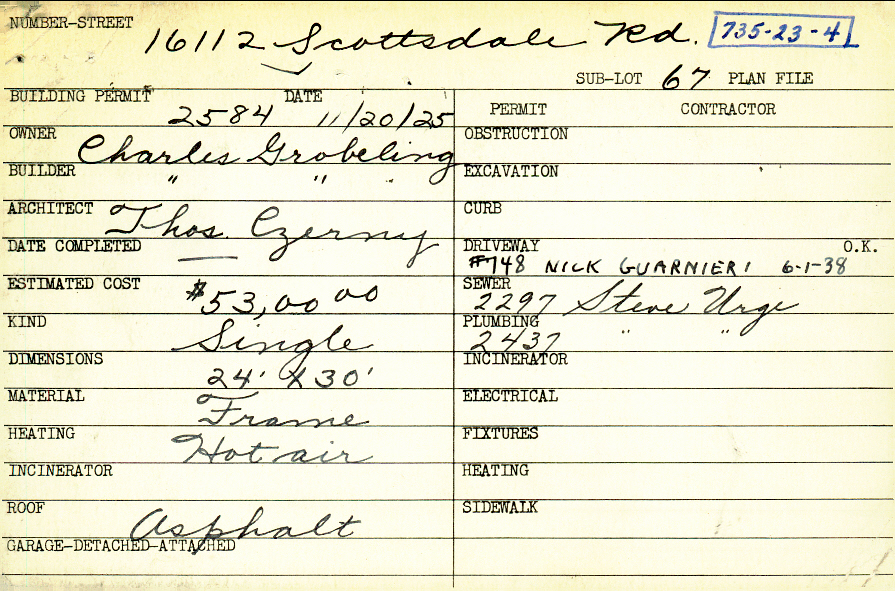 NUMBER-STREET 16112 Scottsdale Rd. 735-23-4
SUB-LOT 67 PLAN FILE
BUILDING PERMIT 2584 DATE 11/20/25
OWNER Charles Grobeling
BUILDER " "
ARCHITECT Thos. Czerny
DATE COMPLETED —
ESTIMATED COST $53,00 00
KIND Single
DIMENSIONS 24' X 30'
MATERIAL Frame
HEATING Hot air
INCINERATOR
ROOF Asphalt
GARAGE-DETACHED-ATTACHED
PERMIT CONTRACTOR
OBSTRUCTION
EXCAVATION
CURB
DRIVEWAY O.K.
#748 NICK GUARNIERI 6-1-38
SEWER
2297 Steve Urge
PLUMBING
2437 " "
INCINERATOR
ELECTRICAL
FIXTURES
HEATING
SIDEWALK